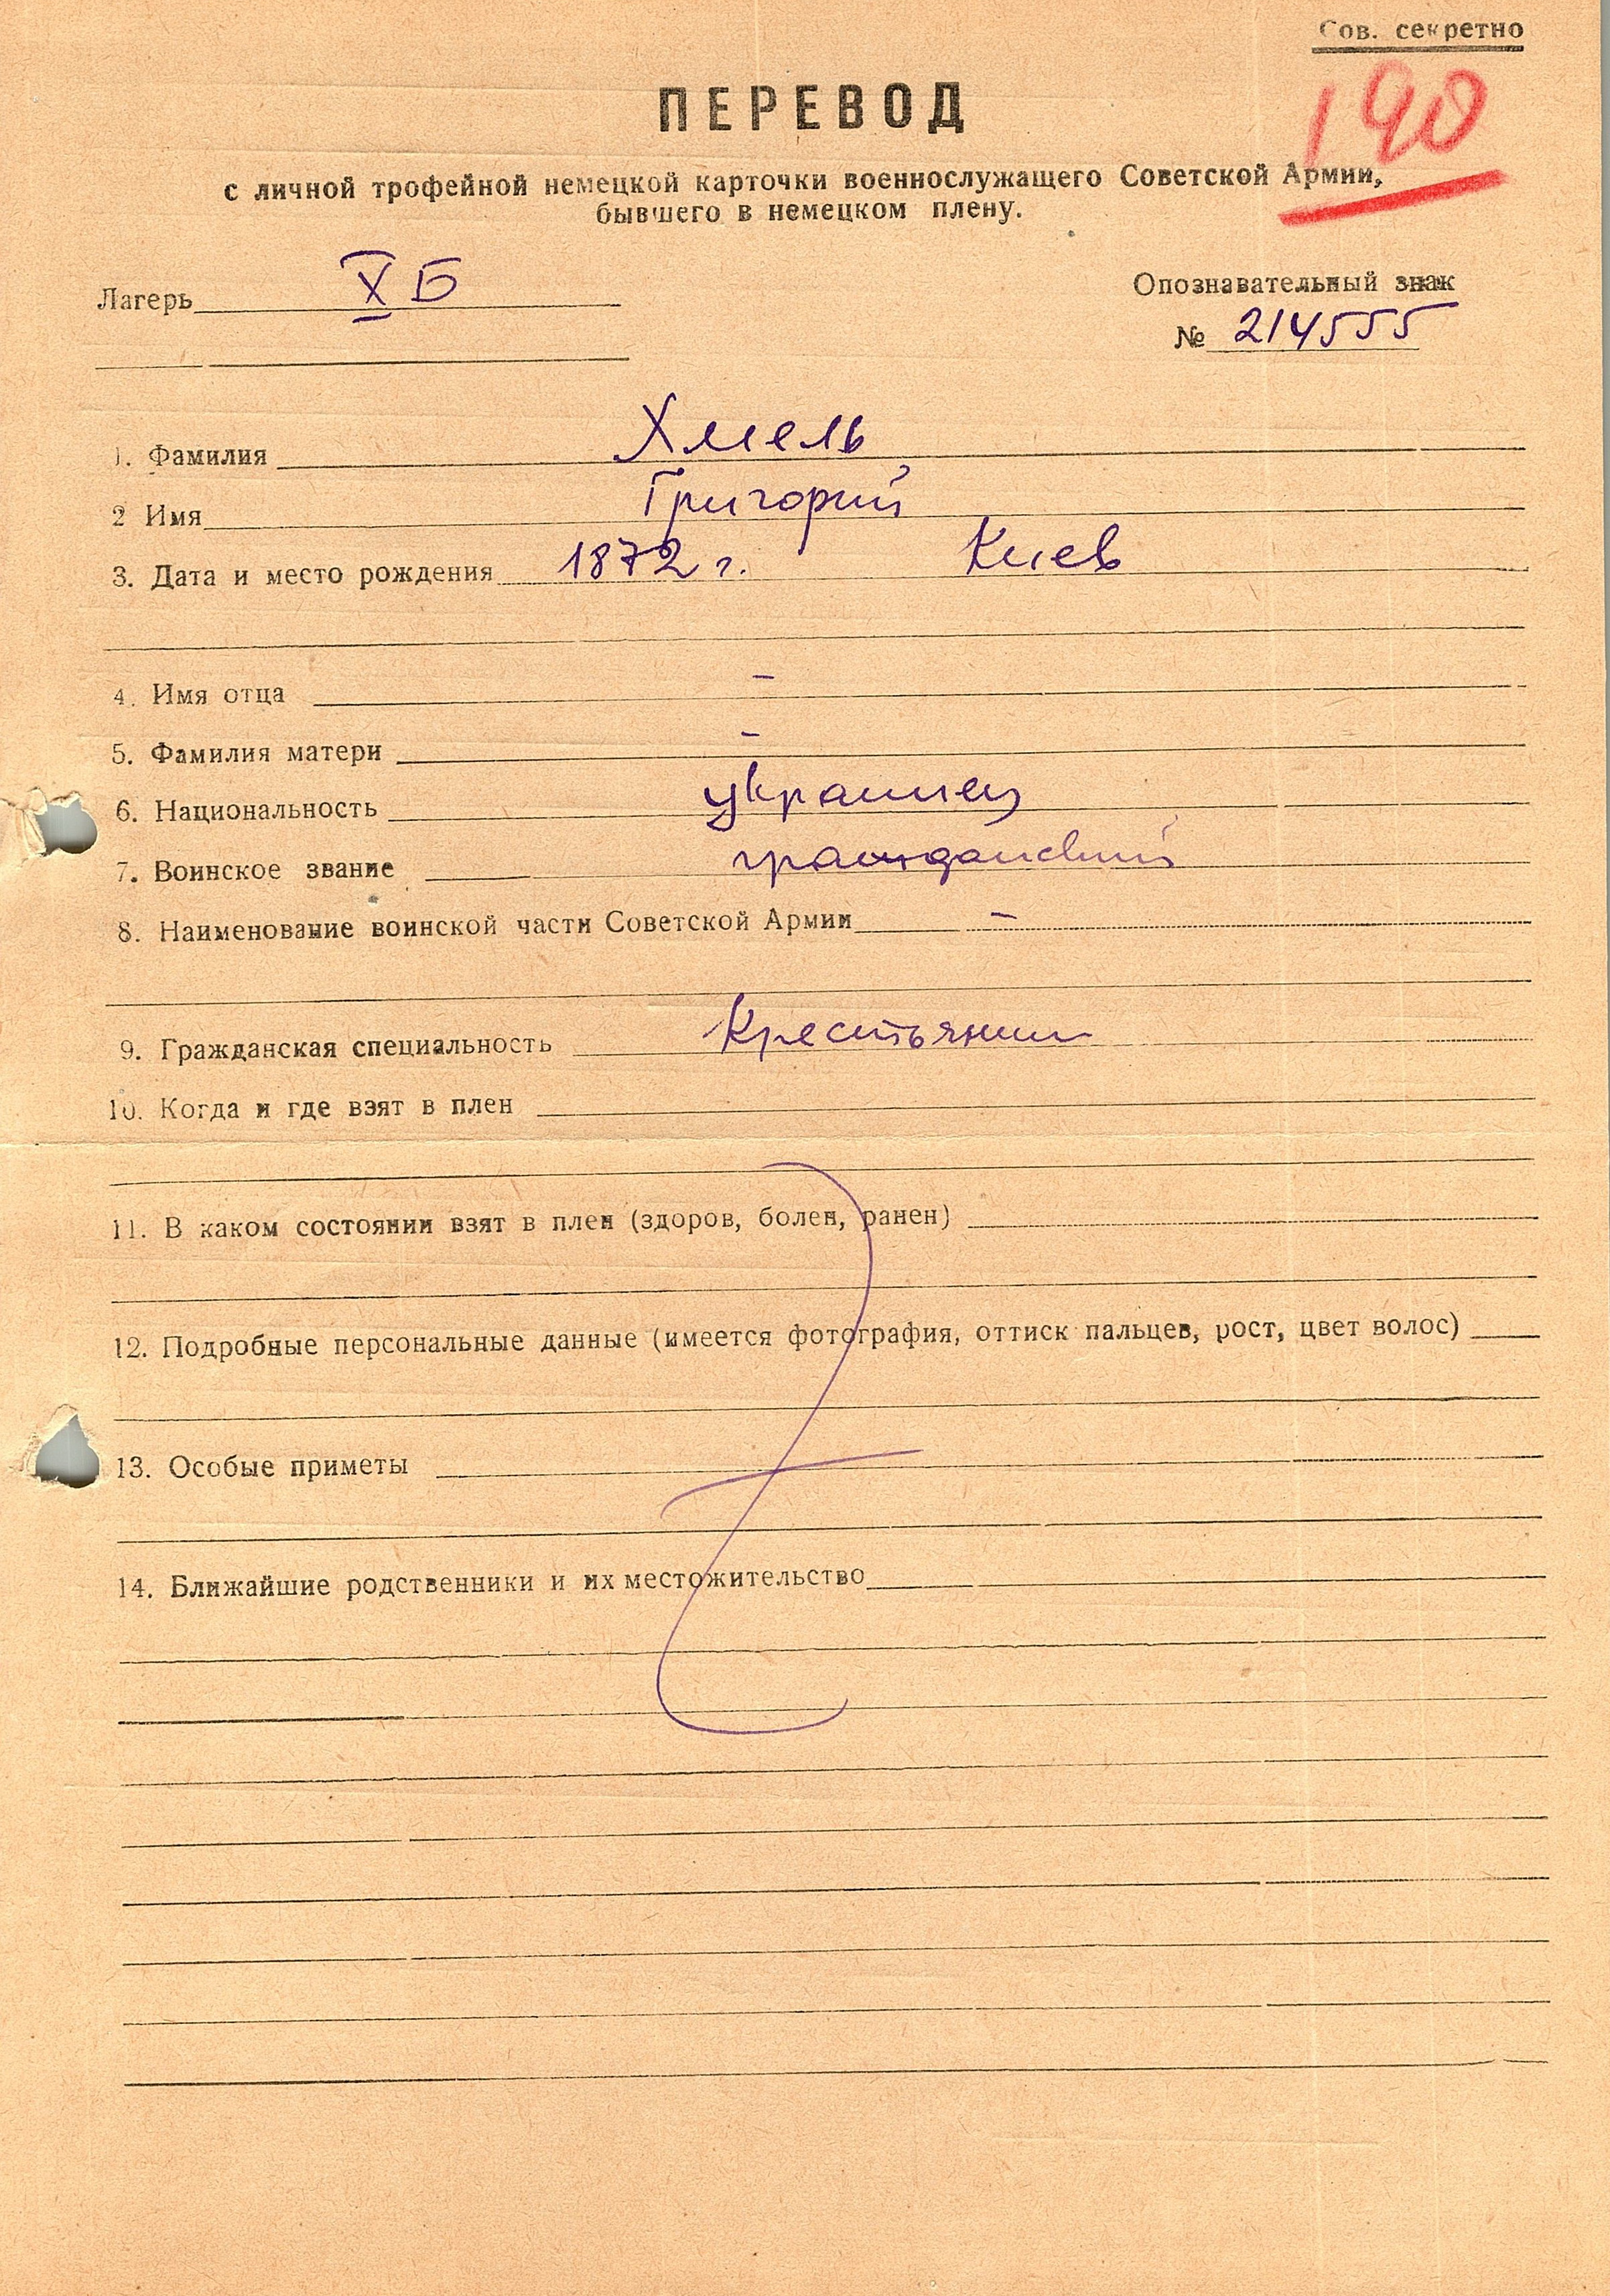 Сов. секретно
190
ПЕРЕВОД
с личной трофейной немецкой карточки военнослужащего Советской Армии,
бывшего в немецком плену.
Лагерь X Б
Опознавательный знак
№ 214555
1. Фамилия Хмель
2 Имя Григорий
3. Дата и место рождения 1872 г. Киев
4. Имя отца –
5. Фамилия матери –
6. Национальность украинец
7. Воинское звание гражданский
8. Наименование воинской части Советской Армии –
9. Гражданская специальность Крестьянин
10. Когда и где взят в плен
11. В каком состоянии взят в плен (здоров, болен, ранен)
12. Подробные персональные данные (имеется фотография, оттиск пальцев, рост, цвет волос)
13. Особые приметы
14. Ближайшие родственники и их местожительство